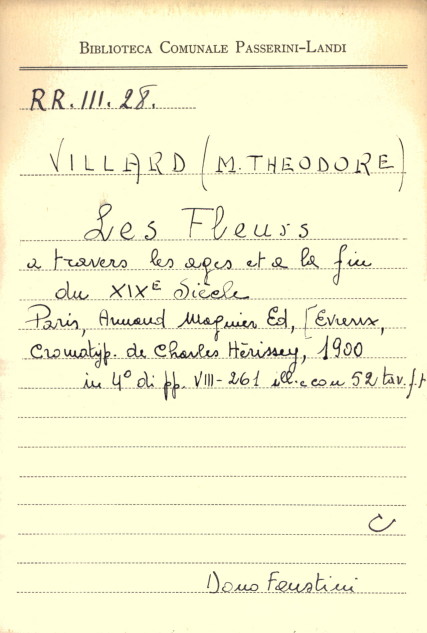 BIBLIOTECA COMUNALE PASSERINI-LANDI
RR. III. 28.
VILLARD (M. THEODORE)
Les Fleurs
a travers les ages et a la fin
du XIXE Siècle
Paris, Armand Magnier Ed, [Evreux,
Cromatyp. de Charles Hérissey, 1900
in 4° di pp. VIII-261 ill. e con 52 tav. f. t
C
Dono Faustini